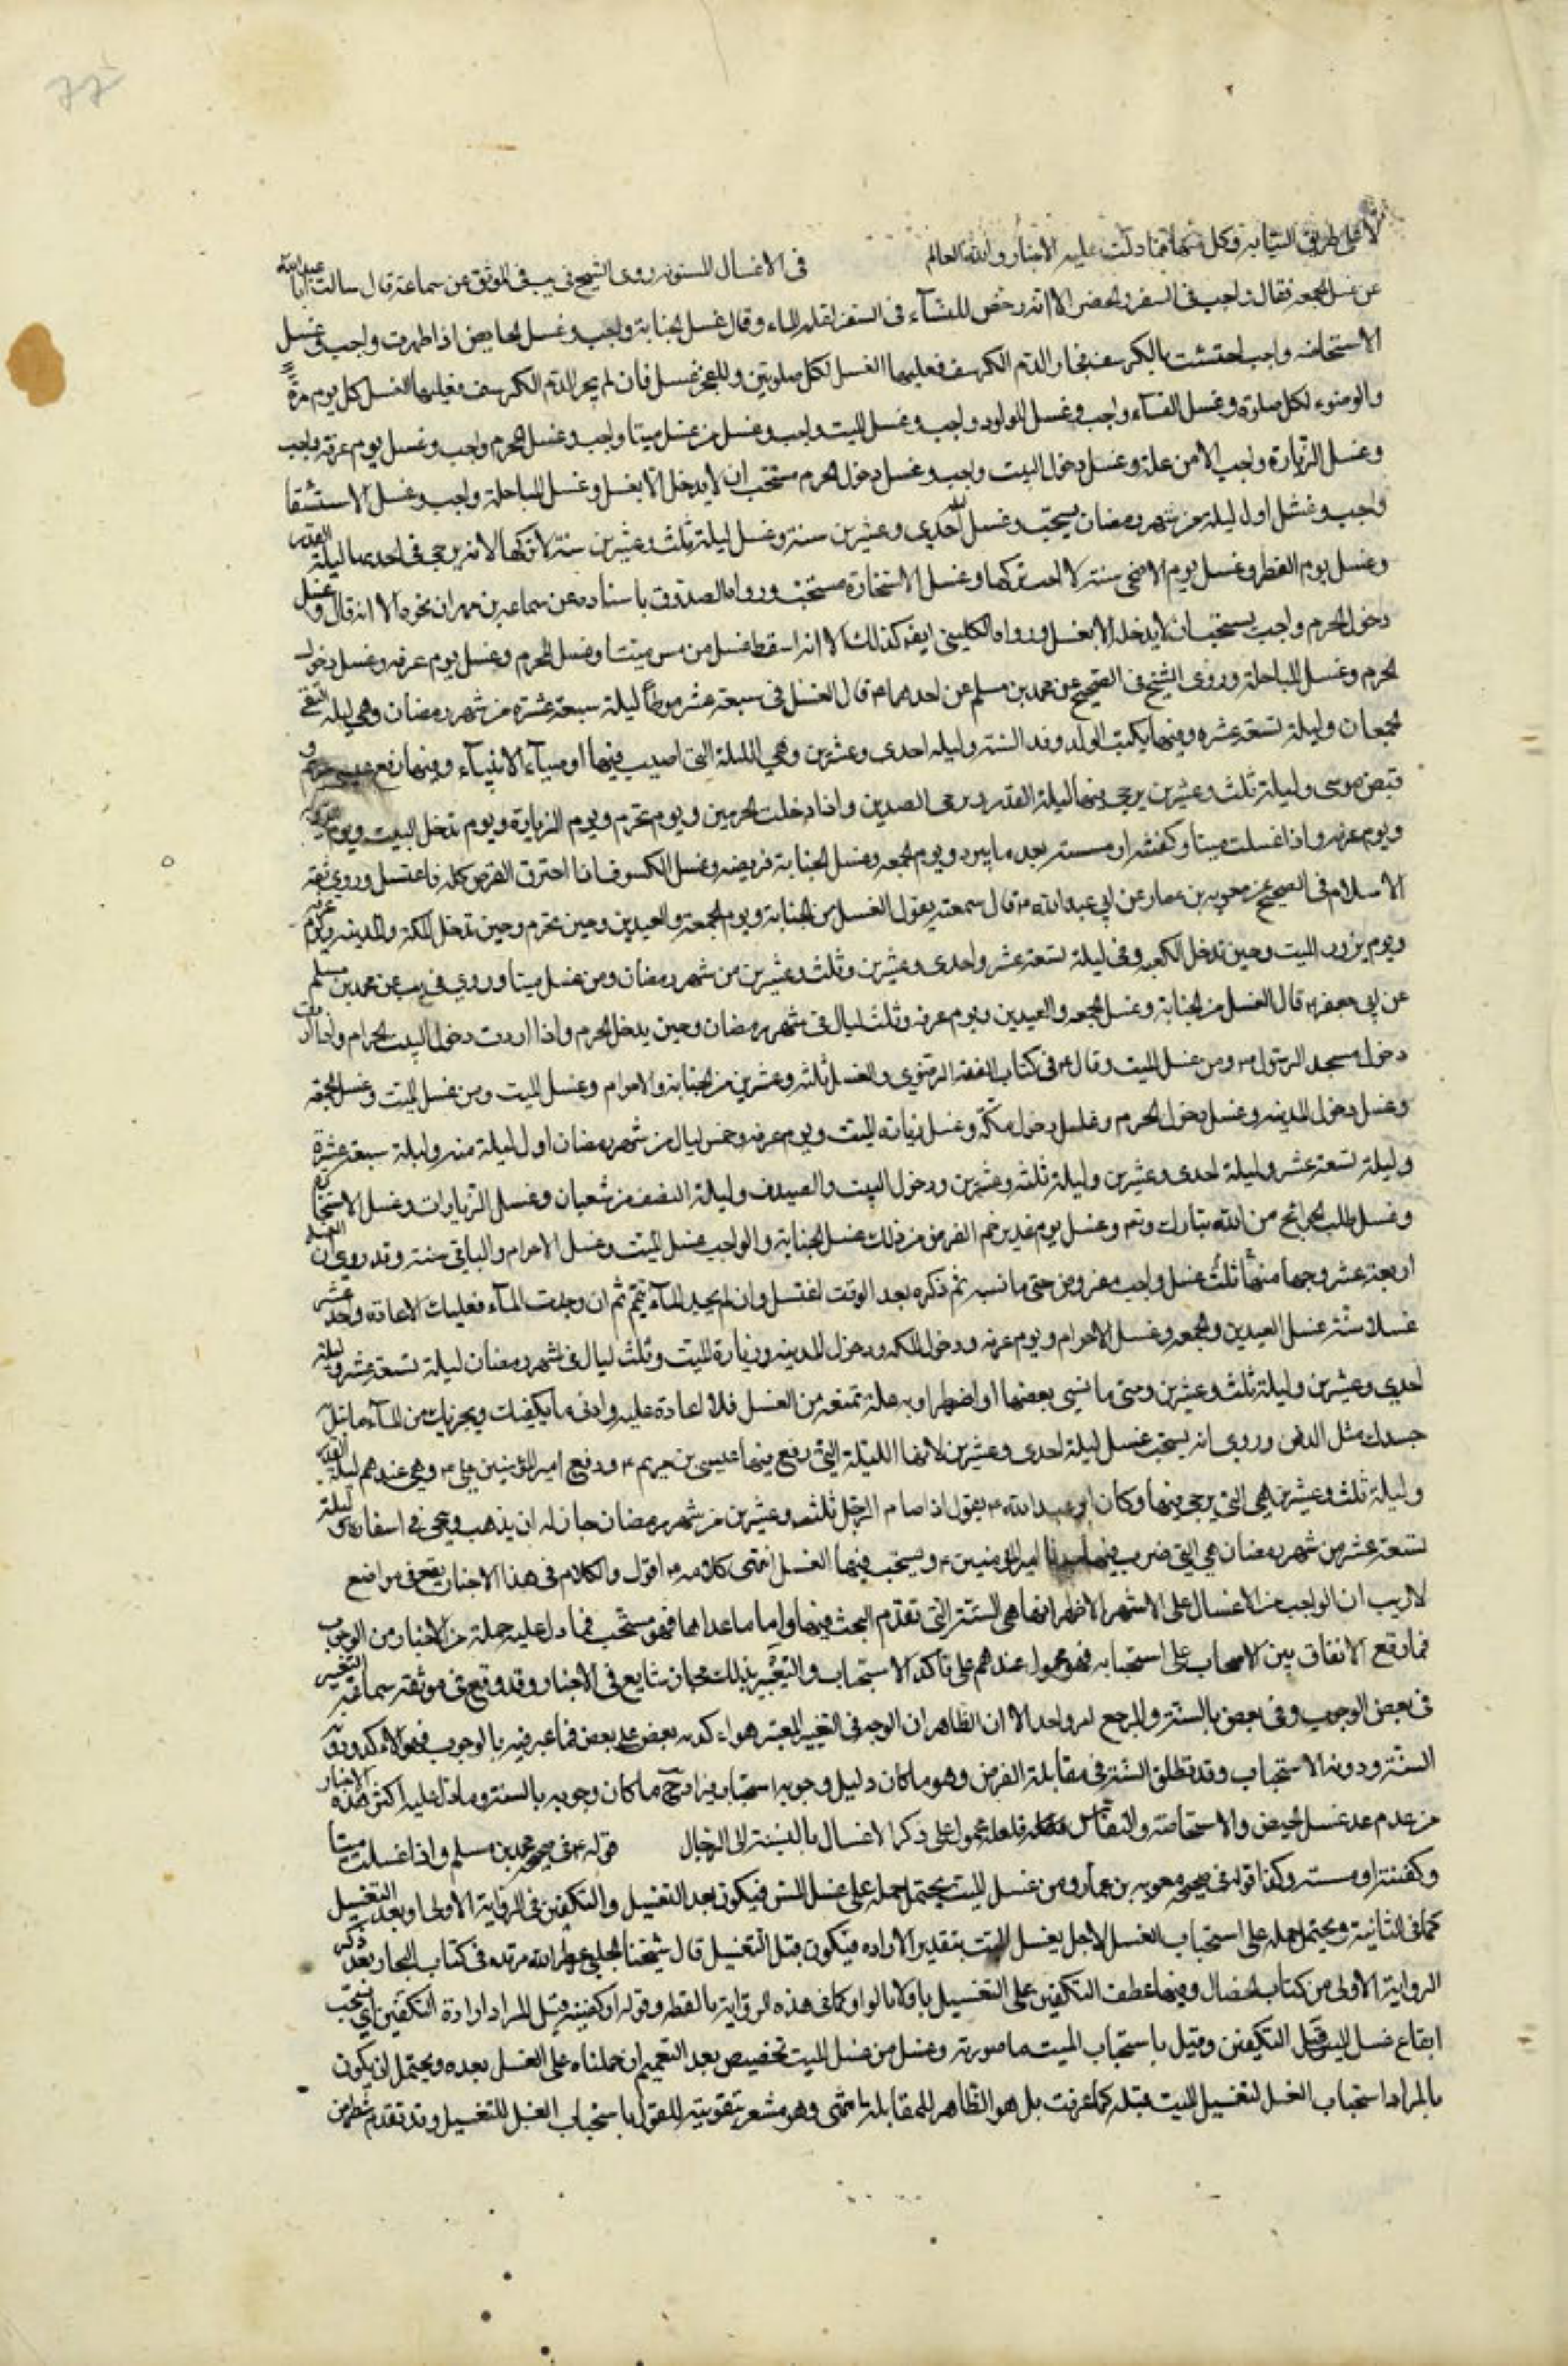 لا على طريق النيابة وكل منهما مما دلت عليه الاخبار والله العالم في الاغسال المسنونه روى الشيخ في يب في الموثق عن سماعة قال سالت ابا عبد الله
عن غسل الجمعه فقال واجب في السفر والحضر الا انه رخص للنسآء في السفر لقلة الماء وقال غسل الجنابة واجب وغسل الحايض اذا طهرت واجب وغسل
الاستحاضه واجب احتشت بالكرسف فجاز الدم الكرسف فعليها الغسل لكل صلوتين وللفجر غسل فان لم يجز الدم الكرسف فعليها الغسل كل يوم مرة
والوضوء لكل صلوة وغسل النفسآء واجب وغسل المولود واجب وغسل الميت واجب وغسل من غسل ميتا واجب وغسل المحرم واجب وغسل يوم عرفة واجب
وغسل الزيارة واجب الا من علة وغسل دخول البيت واجب وغسل دخول الحرم مستحب ان لا يدخل الا بغسل وغسل المباهلة واجب وغسل الاستسقا
واجب وغسل اول ليلة من شهر رمضان يستحب وغسل ليلة احدى وعشرين سنة وغسل ليلة ثلث وعشرين سنة لا تتركها لانه يرجى في احديهما ليلة القدر
وغسل يوم الفطر وغسل يوم الاضحى سنة لا احب تركها وغسل الاستخارة مستحب ورواه الصدوق باسناده عن سماعة بن مهران نحوه الا انه قال وغسل
دخول الحرم واجب يستحب ان لا يدخله الا بغسل ورواه الكليني ايضا كذلك الا انه اسقط غسل من مس ميتا وغسل المحرم وغسل يوم عرفه وغسل دخول
الحرم وغسل المباهلة وروى الشيخ في الصحيح عن محمد بن مسلم عن احدهما ع قال الغسل في سبعة عشر موطناً ليلة سبعة عشرة من شهر رمضان وهي ليلة التقى
الجمعان وليلة تسعة عشره وفيها يكتب الوفد وفد السنة وليله احدى وعشرين وهي الليلة التي اصيب فيها اوصيآء الانبيآء وفيها رفع عيسى بن مريم و
قبض موسى وليلة ثلث وعشرين يرجى فيها ليلة القدر ويومى العيدين واذا دخلت الحرمين ويوم تحرم ويوم الزيارة ويوم تدخل البيت ويوم التروية
ويوم عرفه واذا غسلت ميتا وكفنته او مسسته بعد ما يبرد ويوم الجمعه وغسل الجنابة فريضه وغسل الكسوف اذا احترق القرص كله فاغتسل وروى ثقة
الاسلام في الصحيح عن معويه بن عمار عن ابي عبد الله ع قال سمعته يقول الغسل من الجنابة ويوم الجمعة والعيدين وحين تحرم وحين تدخل مكة والمدينه ويوم عرفه
ويوم يزور البيت وحين تدخل الكعبه وفي ليلة تسعة عشر واحدى وعشرين وثلث وعشرين من شهر رمضان ومن غسل ميتا وروي في يب عن محمد بن مسلم
عن ابي جعفر ع قال الغسل من الجنابة وغسل الجمعه والعيدين ويوم عرفه وثلث ليال في شهر رمضان وحين يدخل الحرم واذا اردت دخول البيت الحرام واذا اردت
دخول مسجد الرسول ص ومن غسل الميت وقال ع في كتاب الفقه الرضوي والغسل ثلثه وعشرين من الجنابة والاحرام وغسل الميت ومن غسل الميت وغسل الجمعه
وغسل دخول المدينه وغسل دخول الحرم وغسل دخول مكة وغسل زيارة البيت ويوم عرفه وخمس ليال من شهر رمضان اول ليلة منه وليلة سبعة عشرة
وليلة تسعة عشر وليلة احدى وعشرين وليلة ثلثه وعشرين ودخول البيت والعيدين وليلة النصف من شعبان وغسل الزيارات وغسل الاستخارة
وغسل طلب الحوائج من الله تبارك وتع وغسل يوم غدير خم الفرض من ذلك غسل الجنابة والواجب غسل الميت وغسل الاحرام والباقي سنة وقد روي ان الغسل
اربعة عشر وجها منها ثلث غسل واجب مفروض متى ما نسيه ثم ذكره بعد الوقت اغتسل وان لم يجد المآء تيمم ثم ان وجدت المآء فعليك الاعادة واحد عشر
غسلا سنة غسل العيدين والجمعه وغسل الاحرام ويوم عرفه ودخول المكه ودخول المدينه وزيارة البيت وثلث ليال في شهر رمضان ليلة تسعة عشر وليلة
احدى وعشرين وليلة ثلث وعشرين ومتى ما نسي بعضها او اضطر او به علة تمنعه من الغسل فلا اعادة عليه وادنى ما يكفيك ويجزيك من المآء ما تبل
جسدك مثل الدهن وروى انه يستحب غسل ليلة احدى وعشرين لانها الليلة التي رفع فيها عيسى بن مريم ع ودفع امير المؤمنين علي ع وهي عندهم ليلة القدر
وليلة ثلث وعشرين هي التي يرجى فيها وكان ابو عبد الله ع يقول اذا صام الرجل ثلثه وعشرين من شهر رمضان جاز له ان يذهب ويجئ في اسفاره وليلة
تسعة عشر من شهر رمضان هي التي ضرب فيها امير المؤمنين ع ويستحب فيها الغسل انتهى كلامه ع اقول والكلام في هذا الاخبار يقع في مواضع
لا ريب ان الواجب من الاغسال على الاشهر الاظهر انما هي الستة التي تقدم البحث فيها واما ما عداها فهو مستحب فما دل عليه جملة من الاخبار من الوجوب
فما وقع الاتفاق بين الاصحاب على استحبابه فهو محمول عندهم على تأكد الاستحباب والتعبير بذلك مجاز شايع في الاخبار وقد وقع في موثقة سماعة التعبير
في بعض الوجوب وفي بعض بالسنة والمرجع له واحد الا ان الظاهر ان الوجه في التعبير المعتبر هو اكديه بعض على بعض فما عبر فيه بالوجوب فهو الاكد ودونه
السنة ودونه الاستحباب وقد تطلق السنة في مقابلة الفرض وهو ما كان دليل وجوبه استحبابه يرادح ما كان وجوبه بالسنة وما دل عليه اكثر هذه الاخبار
من عدم عد غسل الحيض والاستحاضة والنفاس فلعله محمول على ذكر الاغسال بالنسبة الى الرجال قوله ع في صحيحه محمد بن مسلم واذا غسلت ميتا
وكفنته او مسسته وكذا قوله في صحيحه معويه بن عمار ومن غسل الميت يحتمل حمله على غسل المس فيكون بعد التغسيل والتكفين في الرواية الاولى او بعد التغسيل
كما في الثانية ويحتمل حمله على استحباب الغسل لاجل يغسل الميت بتقدير الاراده فيكون قبل التغسيل قال شيخنا المجلسي عطر الله مرقده في كتاب البحار بعد ذكر
الرواية الاولى من كتاب الخصال وفيها عطف التكفين على التغسيل باو لا بالواو كما في هذه الرواية ما لفظه وقوله او كفنته قيل المراد ارادة التكفين اي يستحب
ايقاع غسل الميت قبل التكفين وقيل باستحباب الميت ما صورته وغسل من غسل الميت تخصيص بعد التعميم ان حملناه على الغسل بعده ويحتمل ان يكون
بالمراد استحباب الغسل لتغسيل الميت قبله كما عرفت بل هو الظاهر للمقابلة انتهى وهو مشعر بتقويته للقول باستحباب الغسل للتغسيل وقد تقدم